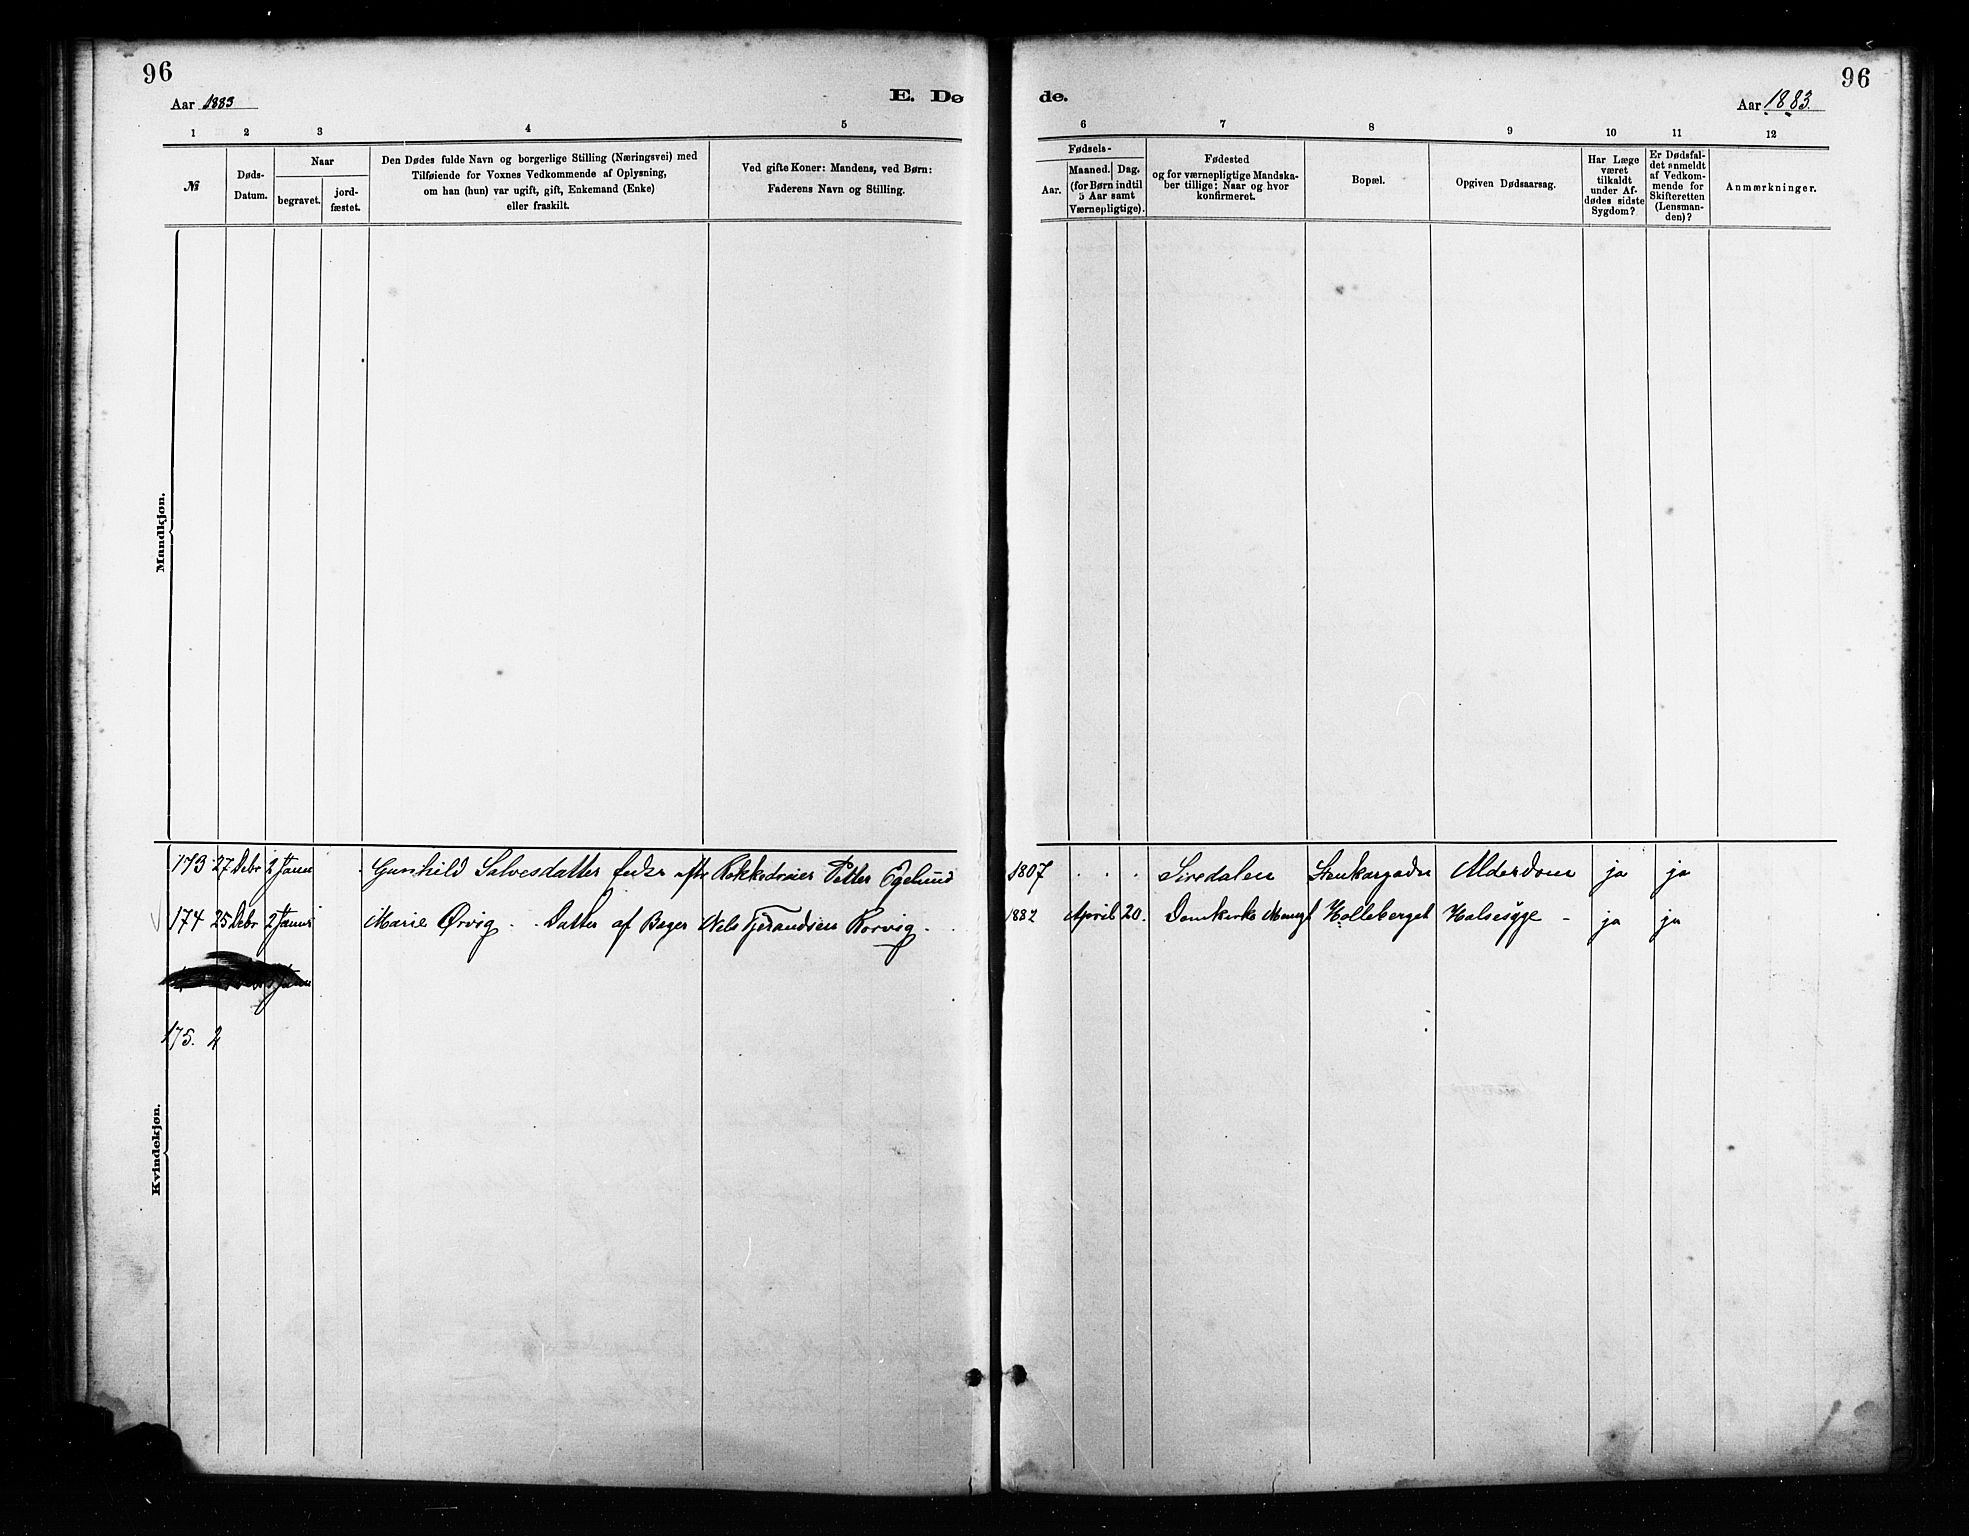 96
Aar 1883
E. Dø
1 2 3 4 5
№
Døds-
Datum.
Naar
begravet.
jord-
fæstet.
Den Dødes fulde Navn og borgerlige Stilling (Næringsvei) med
Tilføiende for Voxnes Vedkommende af Oplysning,
om han (hun) var ugift, gift, Enkemand (Enke)
eller fraskilt.
Ved gifte Koner: Mandens, ved Børn:
Faderens Navn og Stilling.
Mandkjøn.
173 27 Debr 2 Janu Gunhild Salvesdatter efter Petter Egelund
174 25 Debr 2 Janu Marie Ørvig - Datter af Bager Nels Tjerandsen Rorvig.
175. 2
Kvindekjøn.
96
de.
Aar 1883.
6 7 8 9 10 11 12
Fødsels-
Aar.
Maaned. Dag.
(for Børn indtil
5 Aar samt
Værnepligtige).
Fødested
og for værnepligtige Mandska-
ber tillige: Naar og hvor
konfirmeret.
Bopæl.
Opgiven Dødsaarsag.
Har Læge
været
tilkaldt
under Af-
dødes sidste
Sygdom?
Er Dødsfal-
det anmeldt
af Vedkom-
mende for
Skifteretten
(Lensman-
den)?
Anmærkninger.
1807 . . . Siredalen Stenkargaden Alderdom ja ja
1882 April 20. Domkirke Menigh Holleberget Halsesyge - ja ja